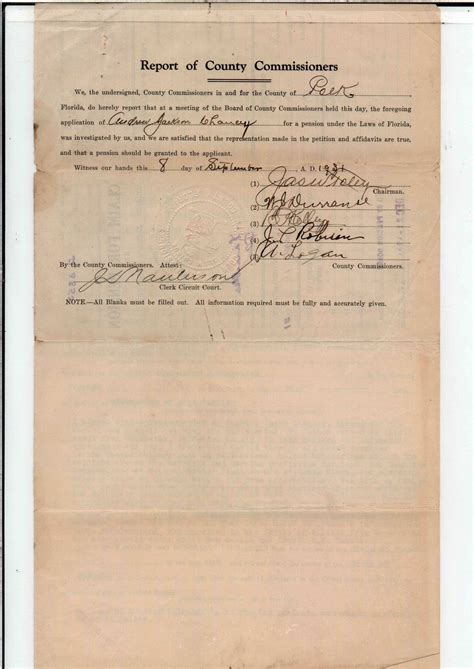 Report of County Commissioners
We, the undersigned, County Commissioners in and for the County of Polk
Florida, do hereby report that at a meeting of the Board of County Commissioners held this day, the foregoing
application of Andrew Jackson Chancey for a pension under the Laws of Florida,
was investigated by us, and we are satisfied that the representation made in the petition and affidavits are true,
and that a pension should be granted to the applicant.
Witness our hands this 8 day of September A. D. 1931
(1)
Chairman.
(2) Durrance
(3)
(4) J. L. Robison
(5) A. Logan
By the County Commissioners. Attest: County Commissioners.
J D Raulerson
Clerk Circuit Court.
NOTE.—All Blanks must be filled out. All information required must be fully and accurately given.